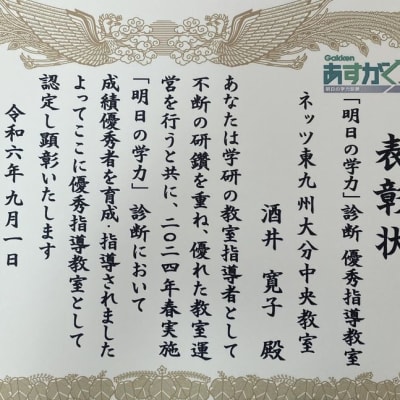 Gakken
あすがく
表彰状
「明日の学力」診断 優秀指導教室
ネッツ東九州大分中央教室
酒井 寛子 殿
あなたは学研の教室指導者として
不断の研鑽を重ね、優れた教室運
営を行うと共に、二〇二四年春実施
「明日の学力」診断において
成績優秀者を育成・指導されました
よってここに優秀指導教室として
認定し顕彰いたします
令和六年九月一日